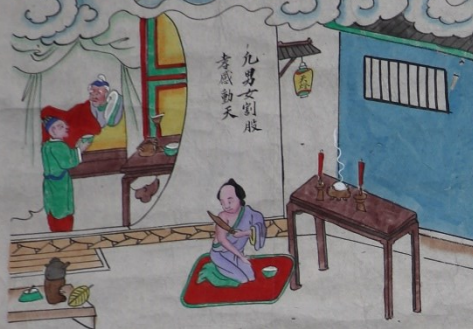 凢男女割股
孝感動天